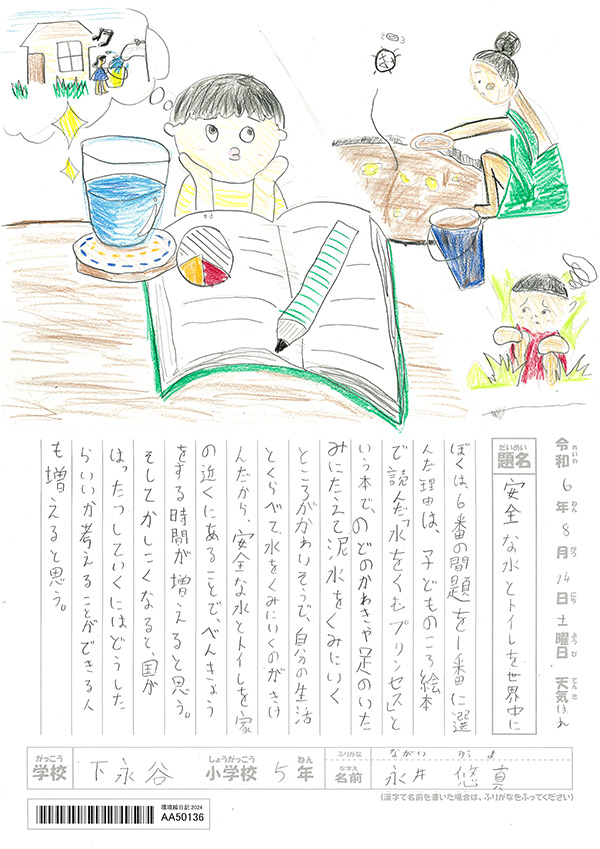 令和6年8月24日土曜日 天気はれ
題名 安全な水とトイレを世界中に
ぼくは、6番の問題を1番に選
んだ理由は、子どものころ絵本
で読んだ「水をくむプリンセス」と
いう本で、のどのかわきや足のいた
みにたえて泥水をくみにいく
ところがかわいそうで、自分の生活
とくらべて水をくみにいくのがきけ
んだから、安全な水とトイレを家
の近くにあることで、べんきょう
をする時間が増えると思う。
そしてかしこくなると、国が
はったつしていくにはどうした
らいいか考えることができる人
も増えると思う。
学校 下永谷 小学校 5年 名前 永井 悠真
がっこう しょうがっこう ねん ふりがな なまえ ながい ゆうま
(漢字で名前を書いた場合は、ふりがなをふってください)
環境絵日記2024
AA50136